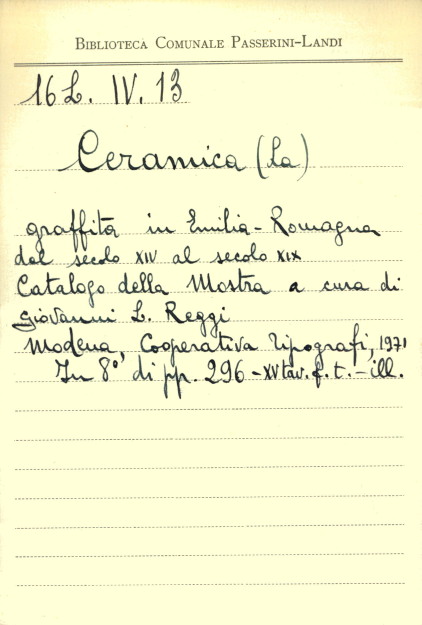 BIBLIOTECA COMUNALE PASSERINI-LANDI
16 L. IV. 13
Ceramica (La)
graffita in Emilia-Romagna
dal secolo XIV al secolo XIX
Catalogo della Mostra a cura di
Giovanni L. Reggi
Modena, Cooperativa Tipografi, 1971
In 8° di pp. 296 - XV tav. f. t. - ill.